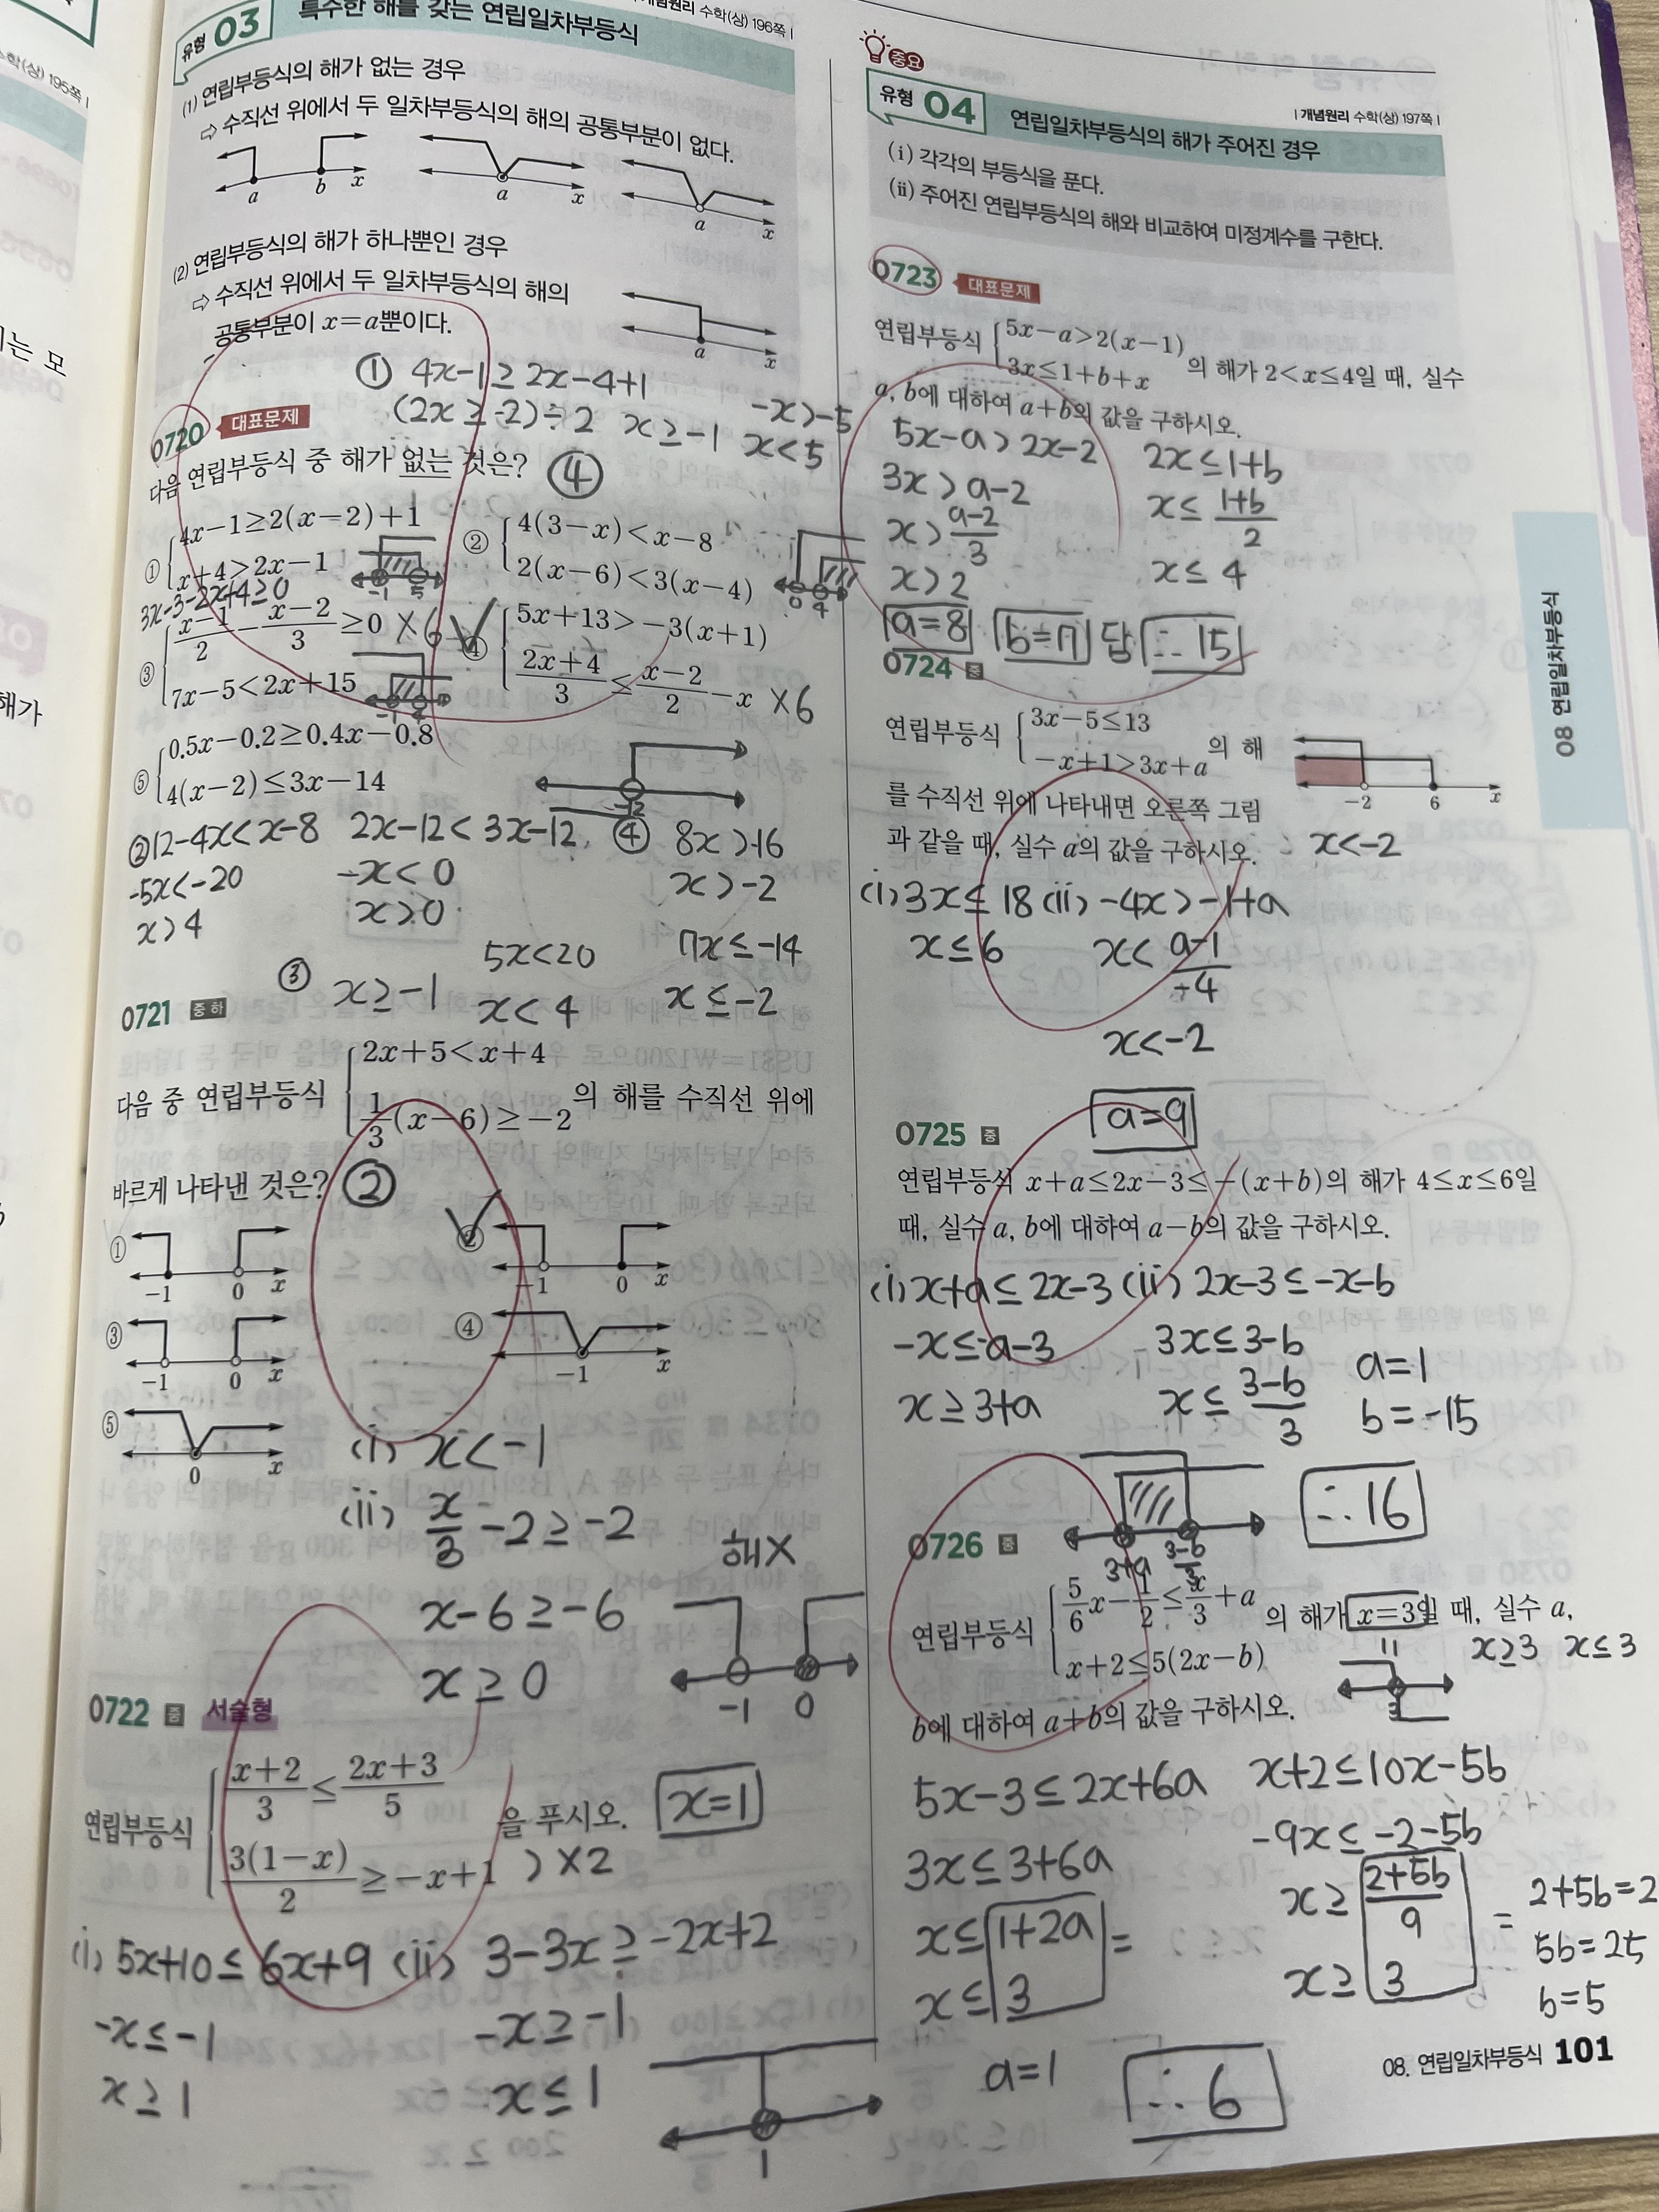 수학(상) 195쪽 |
는 모
해가
유형 03 특수한 해를 갖는 연립일차부등식
개념원리 수학(상) 196쪽 |
(1) 연립부등식의 해가 없는 경우
⇨ 수직선 위에서 두 일차부등식의 해의 공통부분이 없다.
a b x a x a x
(2) 연립부등식의 해가 하나뿐인 경우
⇨ 수직선 위에서 두 일차부등식의 해의
공통부분이 x=a뿐이다.
a x
① 4x-1≥2x-4+1
(2x≥-2)÷2 x≥-1
-x>-5
x<5
0720 대표문제
다음 연립부등식 중 해가 없는 것은? ④
① 4x-1≥2(x-2)+1
x+4>2x-1
-1 5
② 4(3-x)<x-8
2(x-6)<3(x-4)
0 4
3x-3-2x+4≥0
③ x-1/2 - x-2/3 ≥0 ×6
7x-5<2x+15
-1 4
④ 5x+13>-3(x+1)
2x+4/3 ≤ x-2/2 -x ×6
⑤ 0.5x-0.2≥0.4x-0.8
4(x-2)≤3x-14
-2
②12-4x<x-8 2x-12<3x-12 ④ 8x>-16
-5x<-20 -x<0 x>-2
x>4 x>0
③ x≥-1 5x<20 7x≤-14
x<4 x≤-2
0721 중하
다음 중 연립부등식 2x+5<x+4
1/3(x-6)≥-2 의 해를 수직선 위에
바르게 나타낸 것은? ②
① -1 0 x
② -1 0 x
③ -1 0 x
④ -1 x
⑤ 0 x
(i) x<-1
(ii) x/3 -2≥-2
x-6≥-6
x≥0
해X
-1 0
0722 중 서술형
연립부등식 x+2/3 ≤ 2x+3/5
3(1-x)/2 ≥-x+1 을 푸시오. x=1
)×2
(i) 5x+10≤6x+9 (ii) 3-3x≥-2x+2
-x≤-1 -x≥-1
x≥1 x≤1
1
중요
유형 04 연립일차부등식의 해가 주어진 경우
| 개념원리 수학(상) 197쪽 |
(i) 각각의 부등식을 푼다.
(ii) 주어진 연립부등식의 해와 비교하여 미정계수를 구한다.
0723 대표문제
연립부등식 5x-a>2(x-1)
3x≤1+b+x 의 해가 2<x≤4일 때, 실수
a, b에 대하여 a+b의 값을 구하시오.
5x-a>2x-2 2x≤1+b
3x>a-2 x≤ 1+b/2
x> a-2/3
x>2 x≤4
a=8 b=7 답 ∴15
0724 중
연립부등식 3x-5≤13
-x+1>3x+a 의 해
를 수직선 위에 나타내면 오른쪽 그림
과 같을 때, 실수 a의 값을 구하시오.
-2 6 x
∴ x<-2
(i)3x≤18 (ii) -4x>-1+a
x≤6 x< a-1/-4
x<-2
a=9
0725 중
연립부등식 x+a≤2x-3≤-(x+b)의 해가 4≤x≤6일
때, 실수 a, b에 대하여 a-b의 값을 구하시오.
(i)x+a≤2x-3 (ii) 2x-3≤-x-b
-x≤-a-3 3x≤3-b a=1
x≥3+a x≤ 3-b/3 b=-15
3+a 3-b/3
∴16
0726 중
연립부등식 5/6x-1/2≤x/3+a
x+2≤5(2x-b) 의 해가 x=3일 때, 실수 a,
b에 대하여 a+b의 값을 구하시오.
x≥3 x≤3
3
5x-3≤2x+6a x+2≤10x-5b
3x≤3+6a -9x≤-2-5b
x≤1+2a = x≥ 2+5b/9 = 2+5b=2
x≤3 x≥3 5b=25
b=5
a=1 ∴6
08 연립일차부등식
08. 연립일차부등식 101